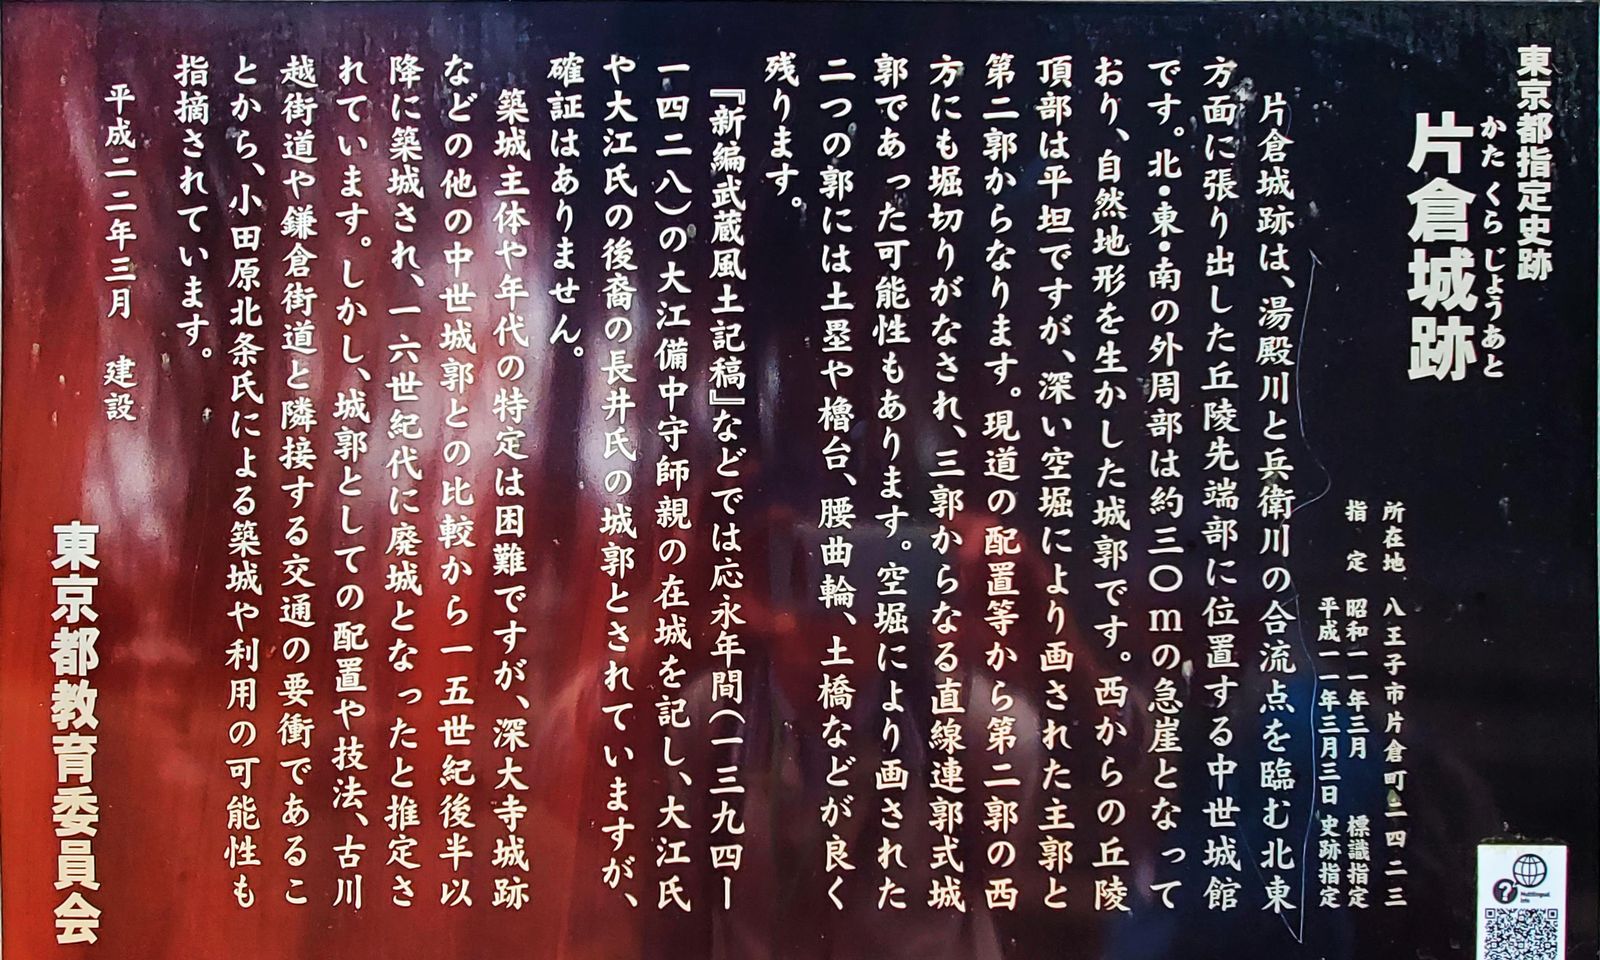 東京都指定史跡
かたくらじょうあと
片倉城跡
所在地 八王子市片倉町二四二三
指定 昭和一一年三月 標識指定
平成一一年三月三日 史跡指定
片倉城跡は、湯殿川と兵衛川の合流点を臨む北東
方面に張り出した丘陵先端部に位置する中世城館
です。北・東・南の外周部は約三〇mの急崖となって
おり、自然地形を生かした城郭です。西からの丘陵
頂部は平坦ですが、深い空堀により画された主郭と
第二郭からなります。現道の配置等から第二郭の西
方にも堀切りがなされ、三郭からなる直線連郭式城
郭であった可能性もあります。空堀により画された
二つの郭には土塁や櫓台、腰曲輪、土橋などが良く
残ります。
『新編武蔵風土記稿』などでは応永年間(一三九四ー
一四二八)の大江備中守師親の在城を記し、大江氏
や大江氏の後裔の長井氏の城郭とされていますが、
確証はありません。
築城主体や年代の特定は困難ですが、深大寺城跡
などの他の中世城郭との比較から一五世紀後半以
降に築城され、一六世紀代に廃城となったと推定さ
れています。しかし、城郭としての配置や技法、古川
越街道や鎌倉街道と隣接する交通の要衝であるこ
とから、小田原北条氏による築城や利用の可能性も
指摘されています。
平成二二年三月 建設
東京都教育委員会
Multilingual
Info